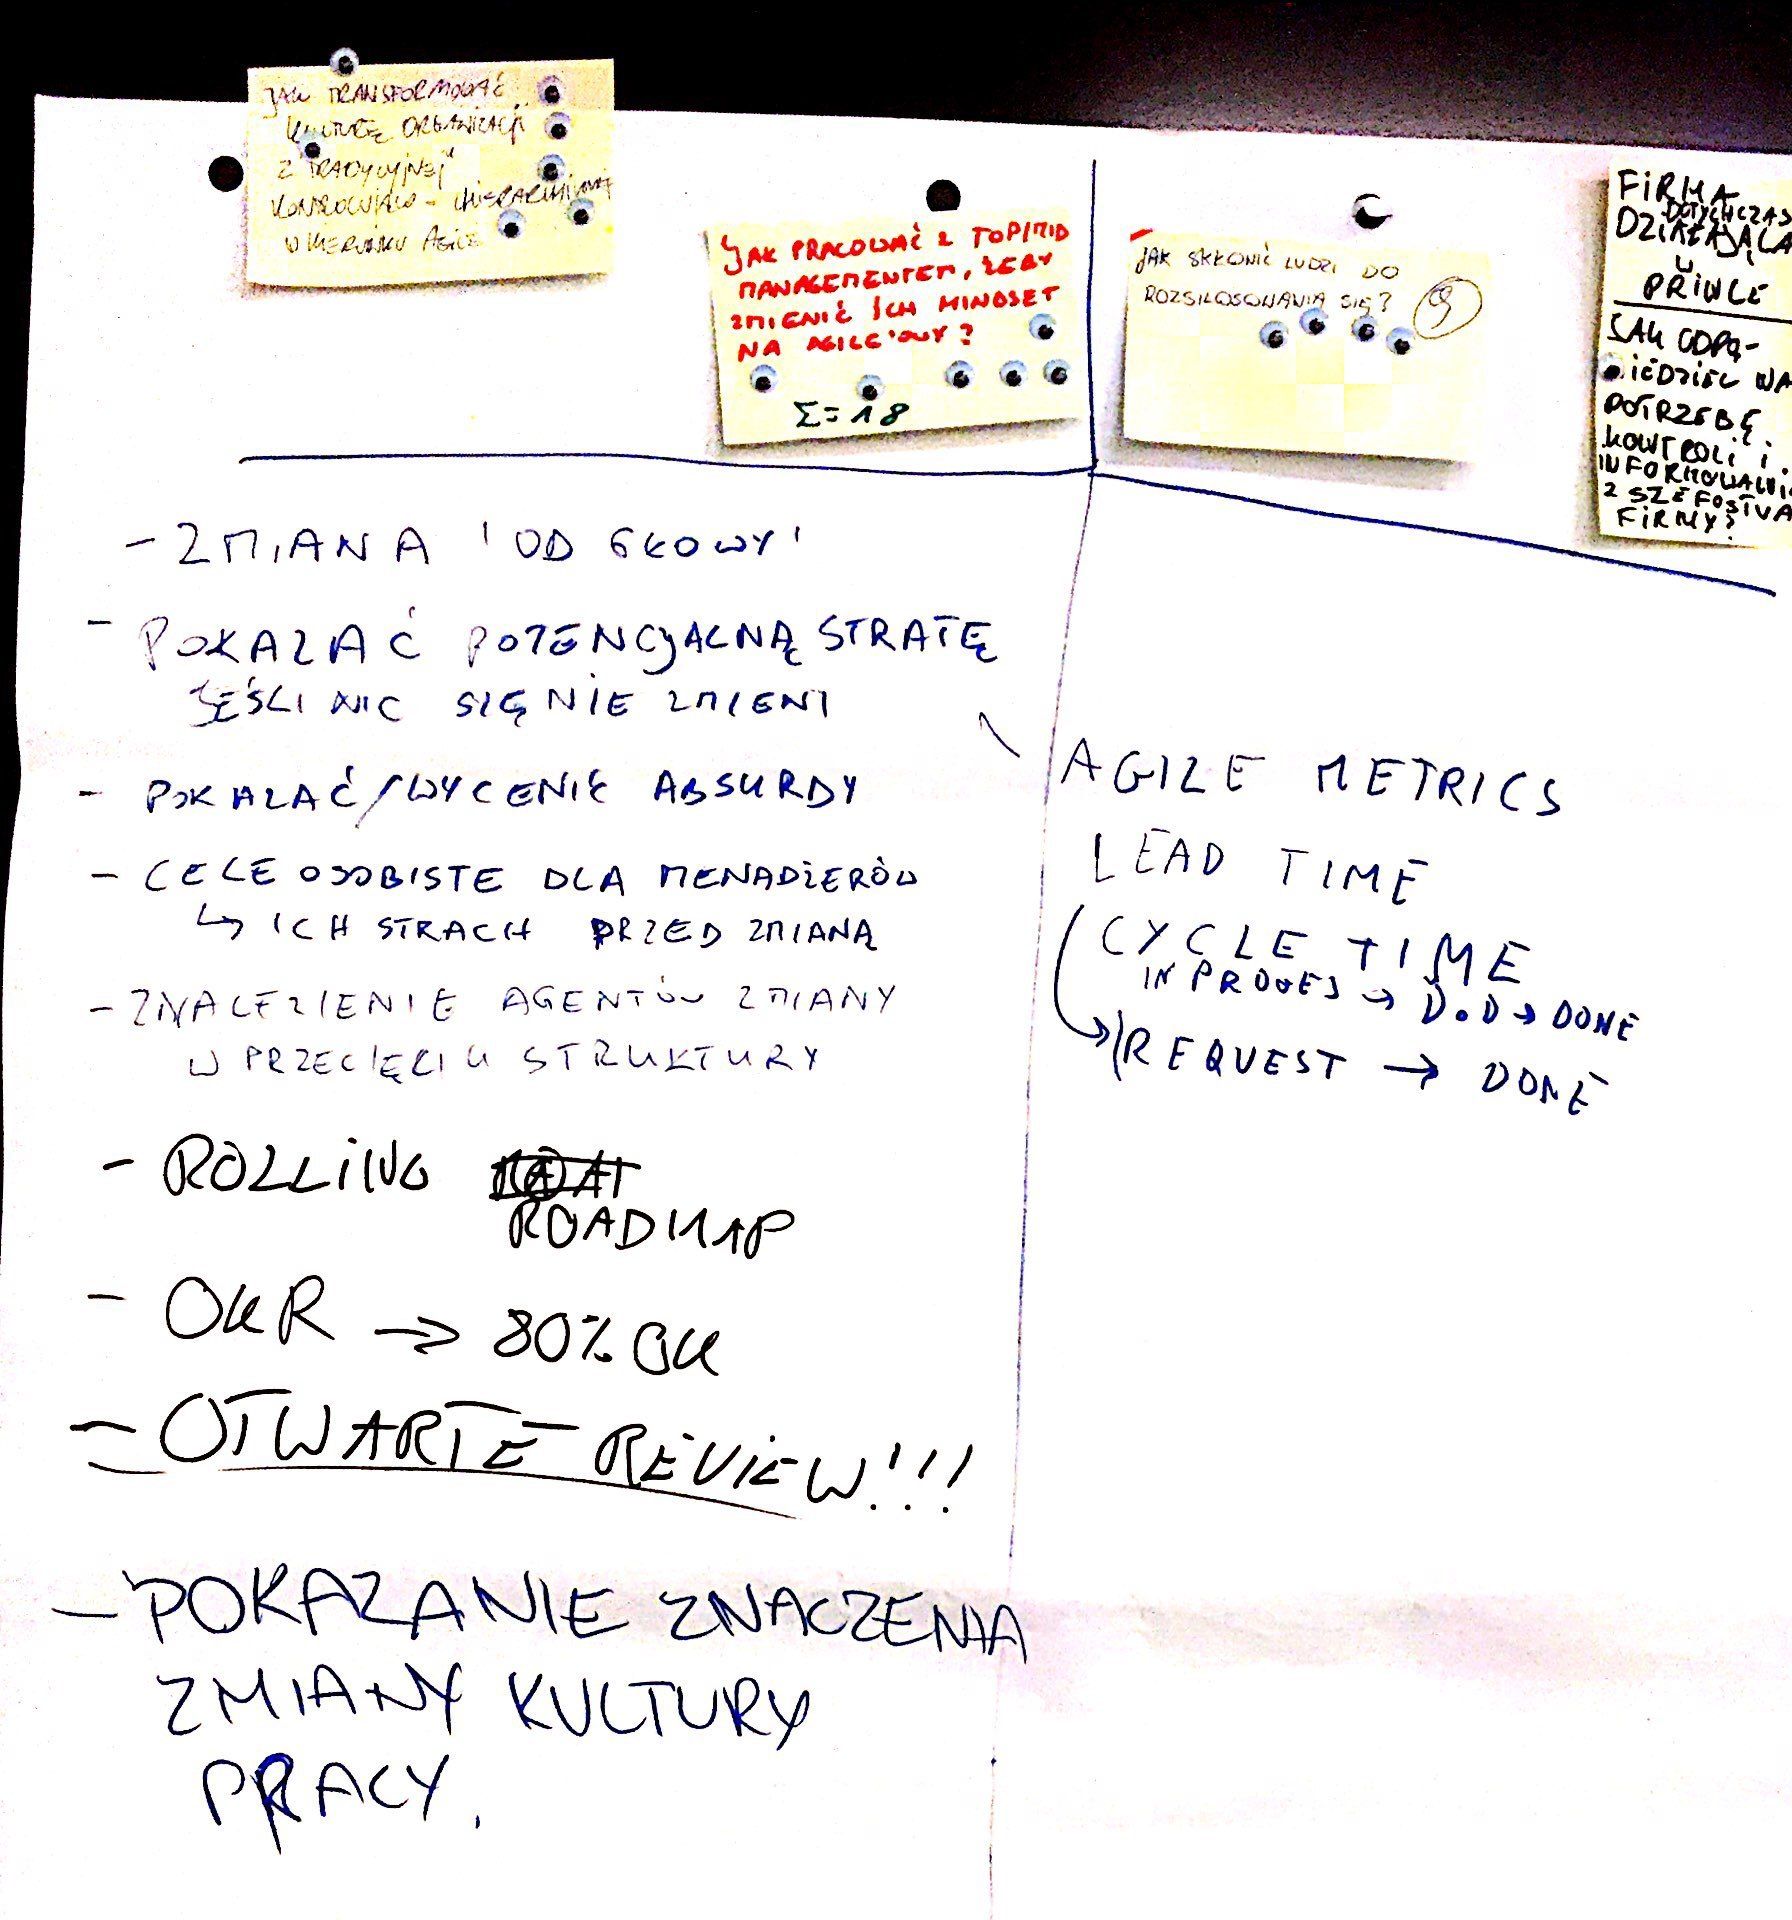 JAK TRANSFORMOWAĆ
KULTURĘ ORGANIZACJI
Z "TRADYCYJNEJ"
KONTROLUJĄCO -
W KIERUNKU AGILE
JAK PRACOWAĆ Z TOP/MID
MANAGEMENTEM, ŻEBY
ZMIENIĆ ICH MINDSET
NA AGILE'OWY?
Σ=18
JAK SKŁONIĆ LUDZI DO
ROZSILOSOWANIA SIĘ? 9
FIRMA
DOTYCHCZAS
DZIAŁAJĄCA
W
PRINCE
JAK ODPO-
WIEDZIEĆ NA
POTRZEBĘ
KONTROLI I
INFORMOWANIA
Z SZEFOSTWA
FIRMY?
- ZMIANA 'OD GŁOWY'
- POKAZAĆ POTENCJALNĄ STRATĘ
JEŚLI NIC SIĘ NIE ZMIENI
- POKAZAĆ/WYCENIĆ ABSURDY
- CELE OSOBISTE DLA MENADŻERÓW
↳ ICH STRACH PRZED ZMIANĄ
- ZNALEZIENIE AGENTÓW ZMIANY
W PRZECIĘCIU STRUKTURY
- ROLLING
ROADMAP
- OKR → 80% OK
- OTWARTE REVIEW!!!
- POKAZANIE ZNACZENIA
ZMIANY KULTURY
PRACY.
AGILE METRICS
LEAD TIME
CYCLE TIME
IN PROGES → D.O.D → DONE
REQUEST → DONE